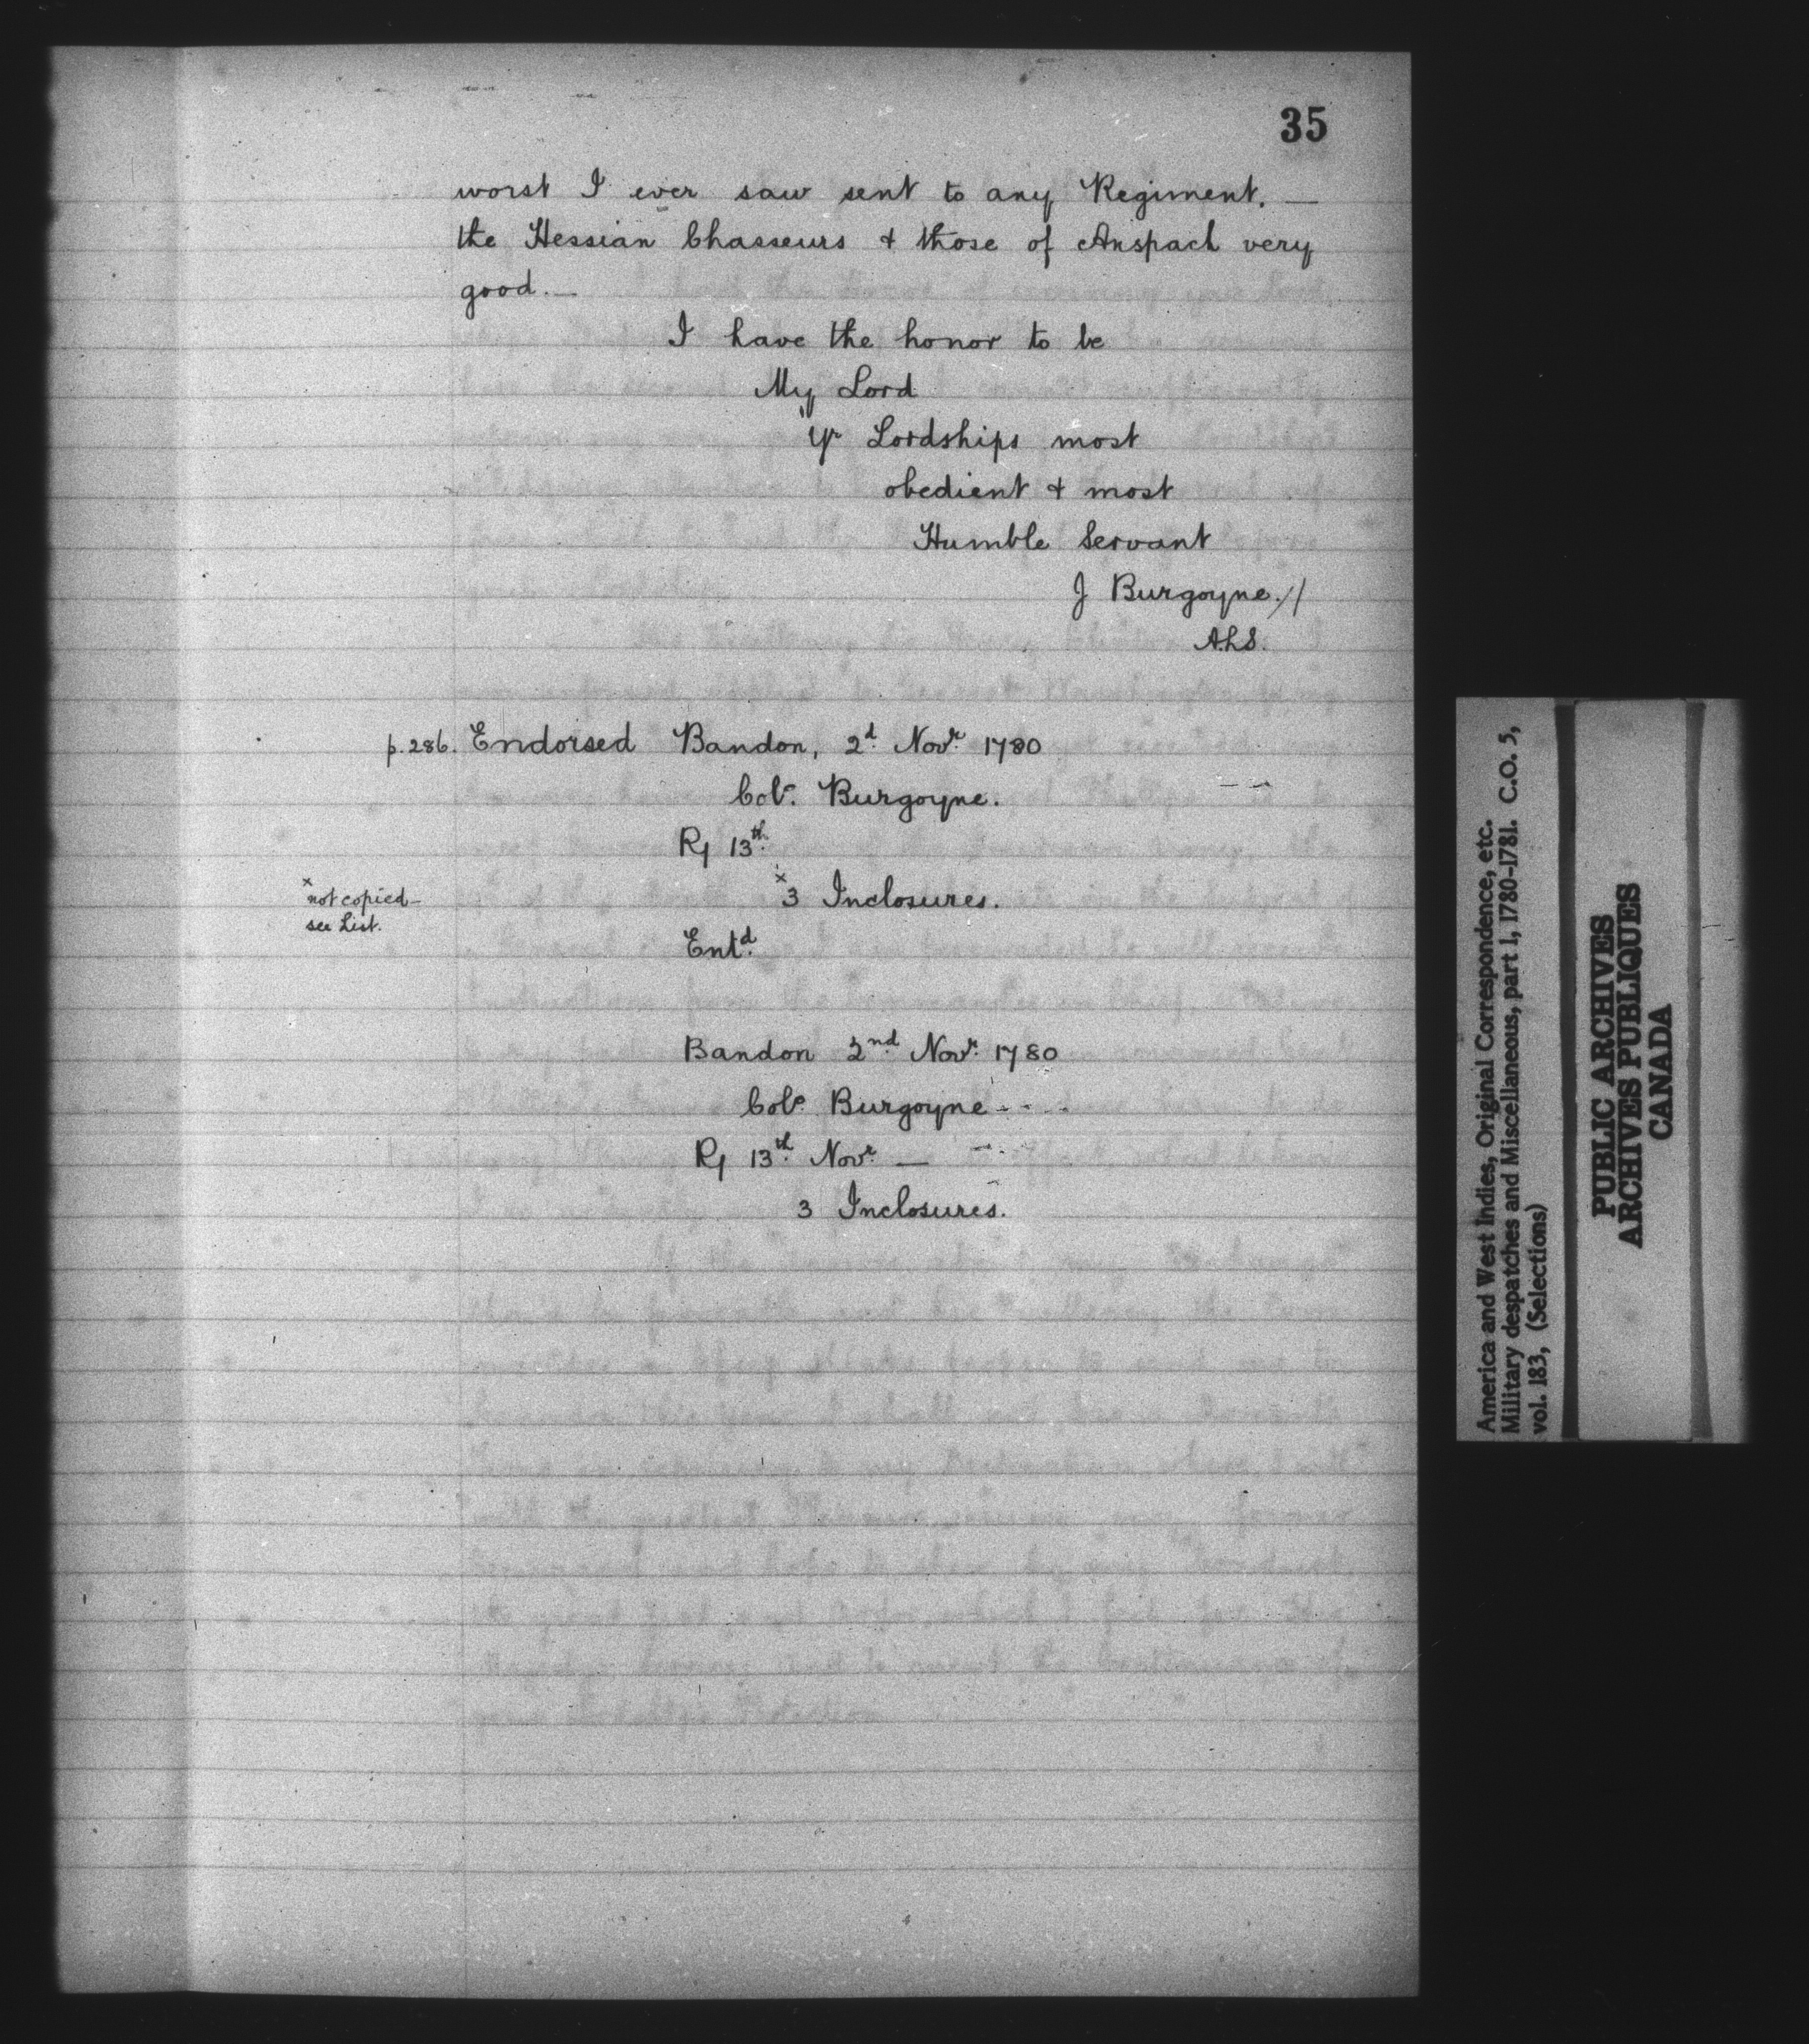 35
worst I ever saw sent to any Regiment. —
the Hessian Chasseurs & those of Anspach very
good. —
I have the honor to be
My Lord
Yr Lordships most
obedient & most
Humble Servant
J Burgoyne.//
A.L.S.
p.286. Endorsed Bandon, 2d. Novr. 1780
Colo. Burgoyne.
R/ 13th.
x not copied – x3 Inclosures.
see List.
Entd.
Bandon 2nd. Novr. 1780
Colo. Burgoyne - - -
R/ 13th. Novr. —
3 Inclosures.
America and West Indies, Original Correspondence, etc.
Military despatches and Miscellaneous, part 1, 1780-1781. C.O. 5,
vol. 183, (Selections)
PUBLIC ARCHIVES
ARCHIVES PUBLIQUES
CANADA